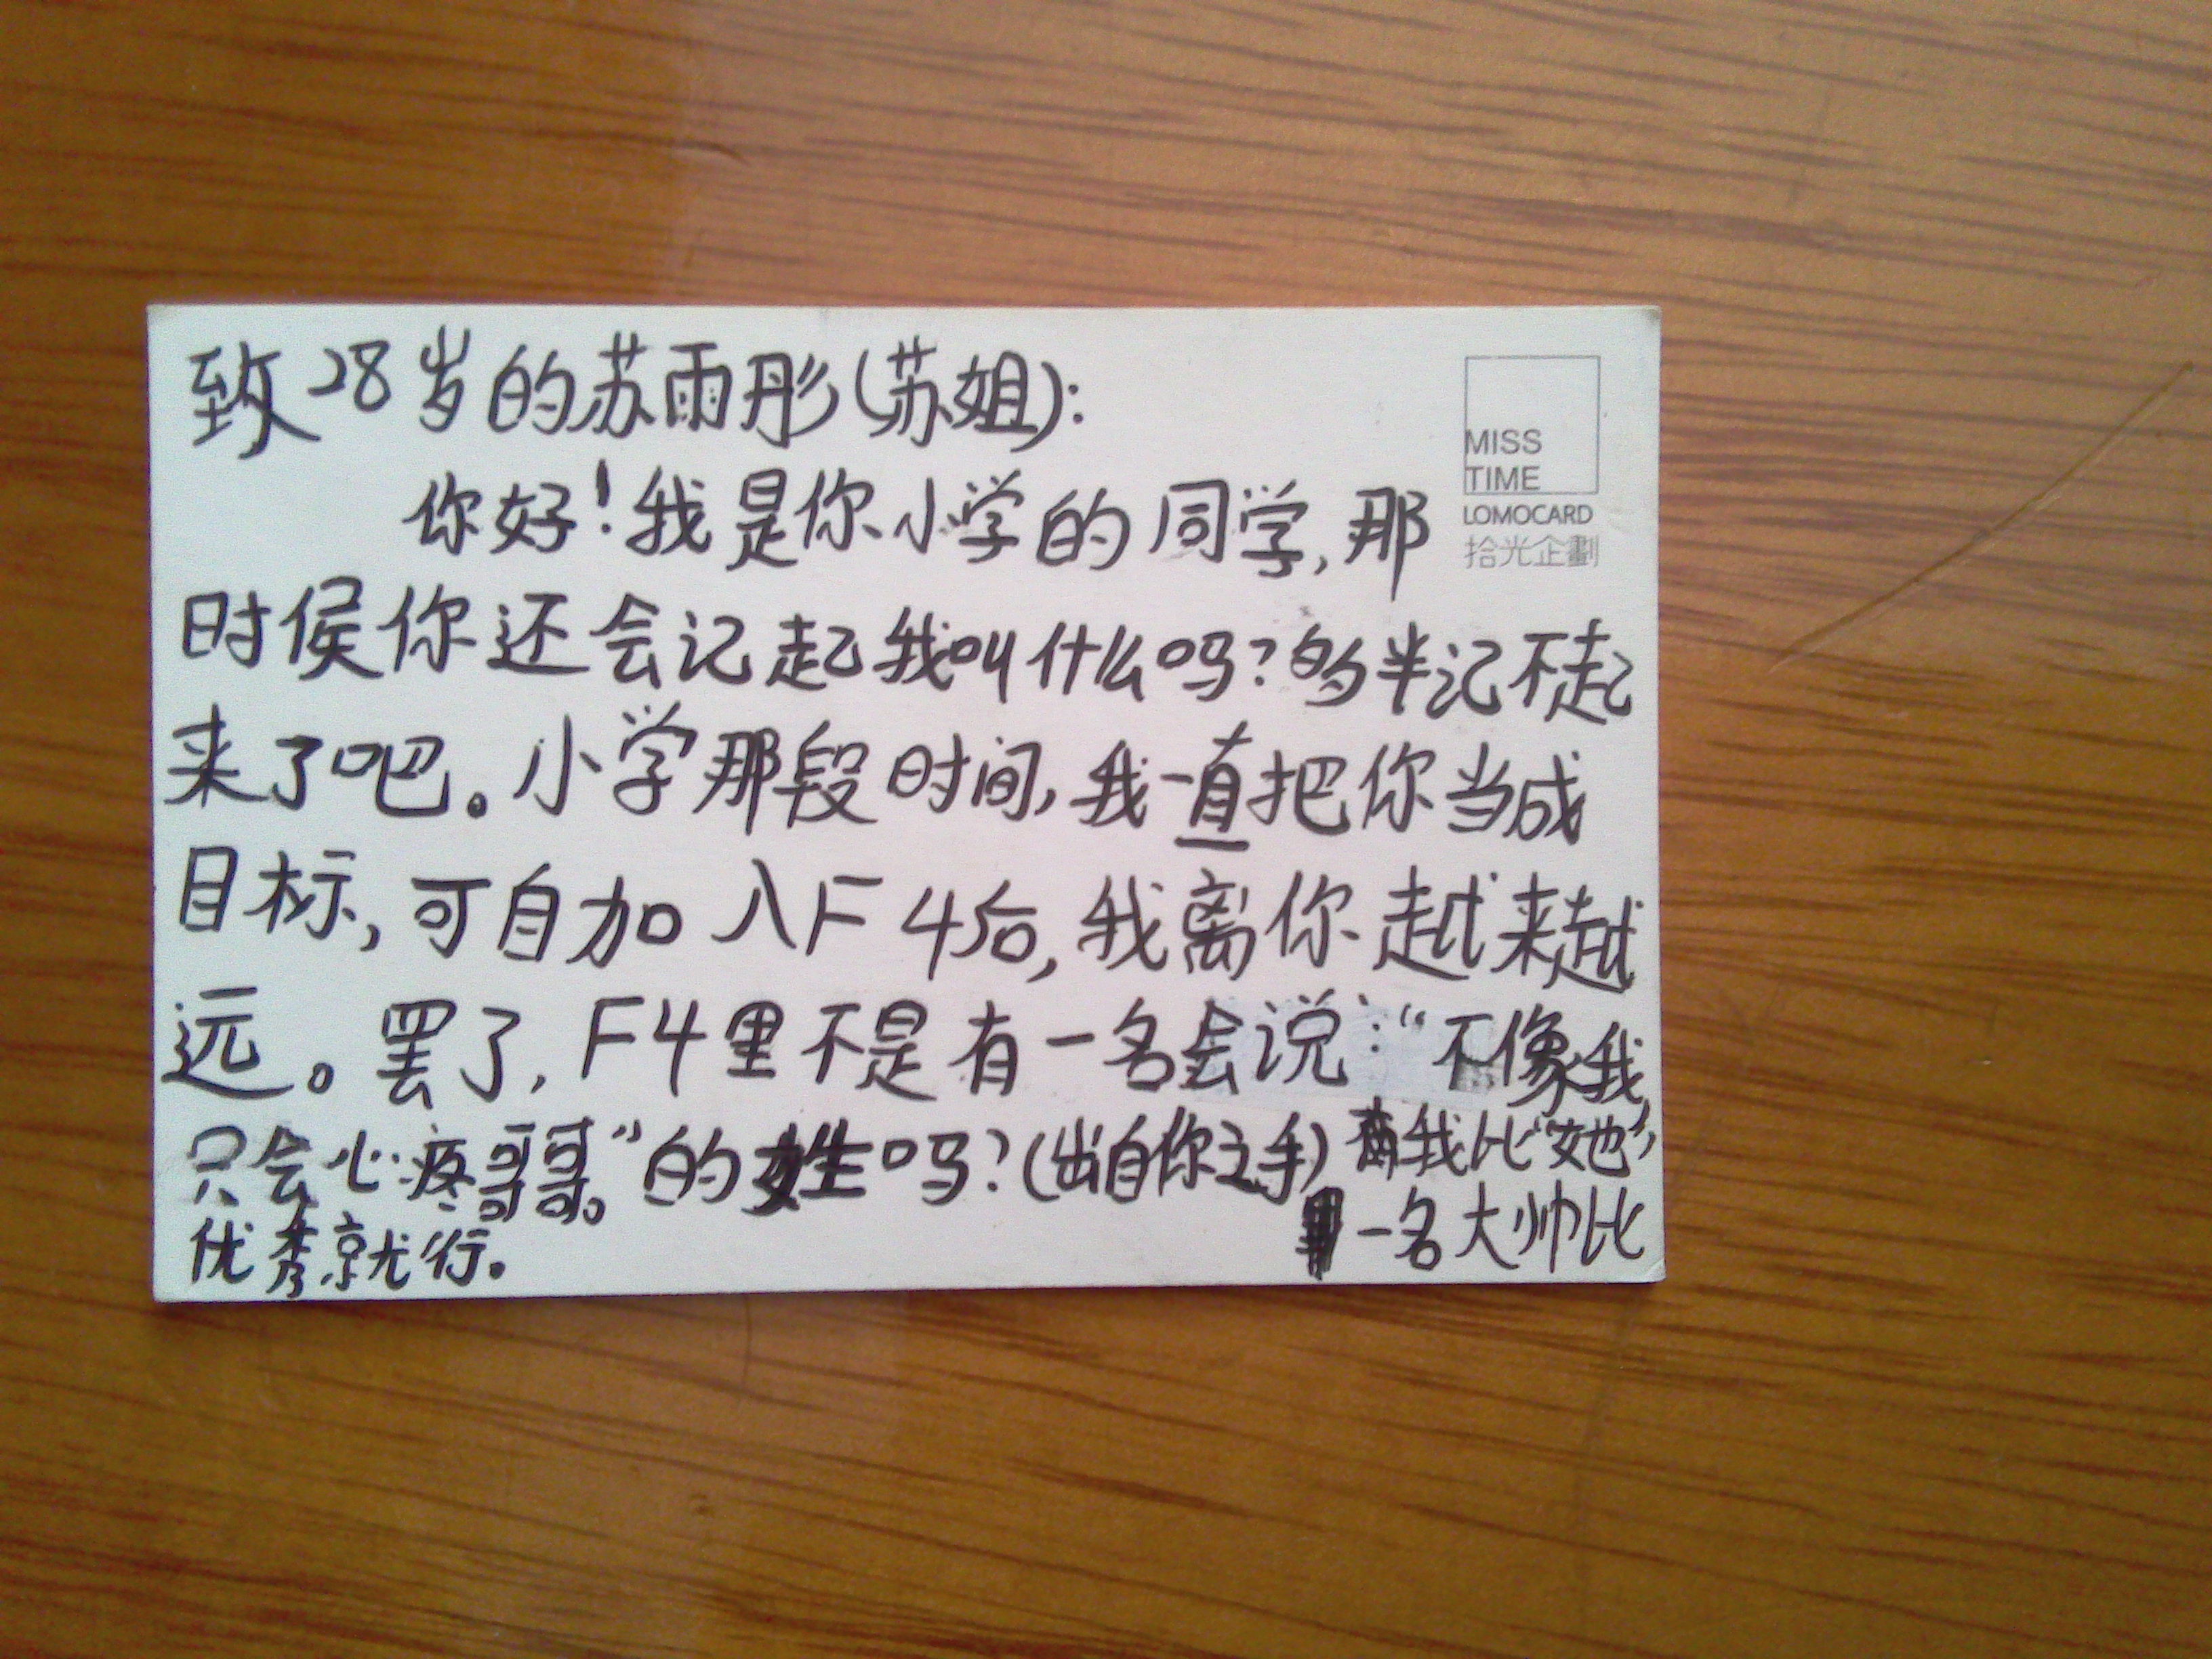 致28岁的苏雨彤(苏姐):
你好!我是你小学的同学,那
时侯你还会记起我叫什么吗?多半记不起
来了吧。小学那段时间,我一直把你当成
目标,可自加入F4后,我离你越来越
远。罢了,F4里不是有一名会说:“不像我
只会心疼哥哥。”的姓吗?(出自你之手)我比“她”
优秀就行。
一名大帅比
MISS
TIME
LOMOCARD
拾光企劃